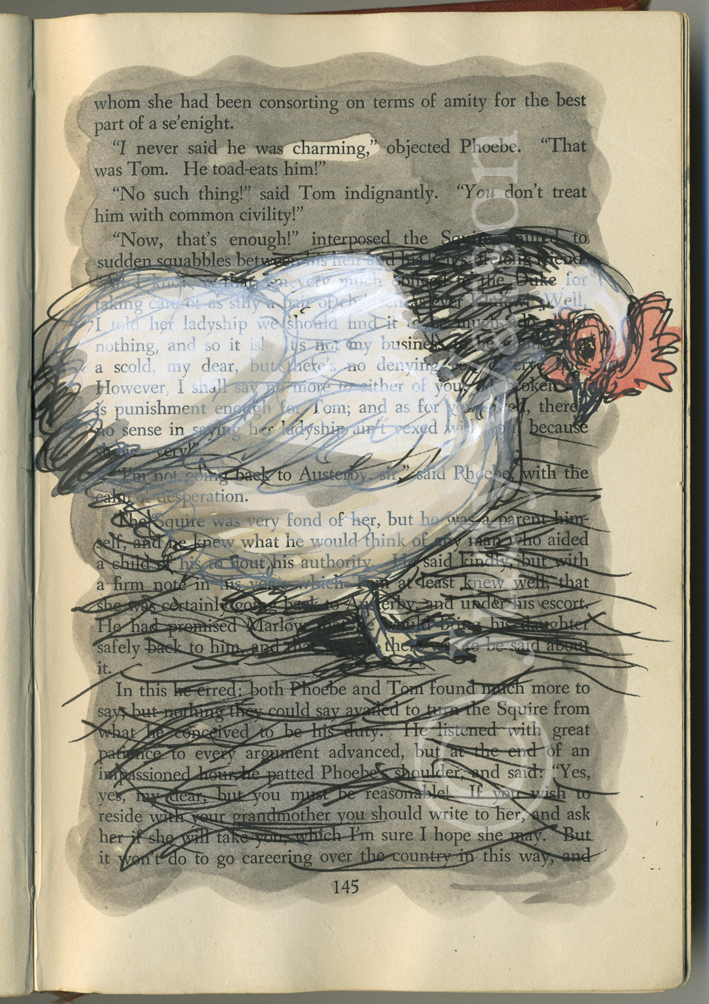 whom she had been consorting on terms of amity for the best
part of a se'enight.
"I never said he was charming," objected Phoebe. "That
was Tom. He toad-eats him!"
"No such thing!" said Tom indignantly. "You don't treat
him with common civility!"
"Now, that's enough!" interposed the Squire, to
sudden squabbles between his heir and his friend.
"All I know is that I'm very much to the Duke for
taking care of as silly a pair of children as ever Well,
I told her ladyship we should find it
nothing, and so it is! It's not my business to be
a scold, my dear, but there's no denying
However, I shall say no more to either of you.
is punishment enough for Tom; and as for there's
no sense in saying her ladyship ain't vexed with because
very
"I'm not going back to Austerby, sir," said Phoebe, with the
calm of desperation.
The Squire was very fond of her, but he was a parent him-
self, and he knew what he would think of any man who aided
a child of his to flout his authority. He said kindly, but with
a firm note in his voice which Tom at least knew well, that
she was certainly going back to Austerby, and under his escort.
He had promised Marlow that he would bring his daughter
safely back to him, and that there to be said about
it.
In this he erred: both Phoebe and Tom found much more to
say, but nothing they could say availed to turn the Squire from
what he conceived to be his duty. He listened with great
patience to every argument advanced, but at the end of an
impassioned hour, he patted Phoebe's shoulder, and said: "Yes,
yes, my dear, but you must be reasonable! If you wish to
reside with your grandmother you should write to her, and ask
her if she will take you, which I'm sure I hope she may. But
it won't do to go careering over the country in this way, and
145